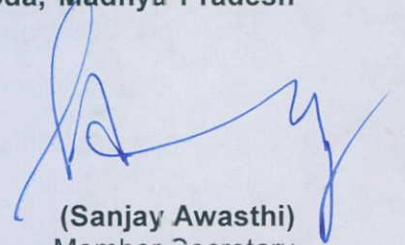 Madhya Pradesh
(Sanjay Awasthi)
Member Secretary